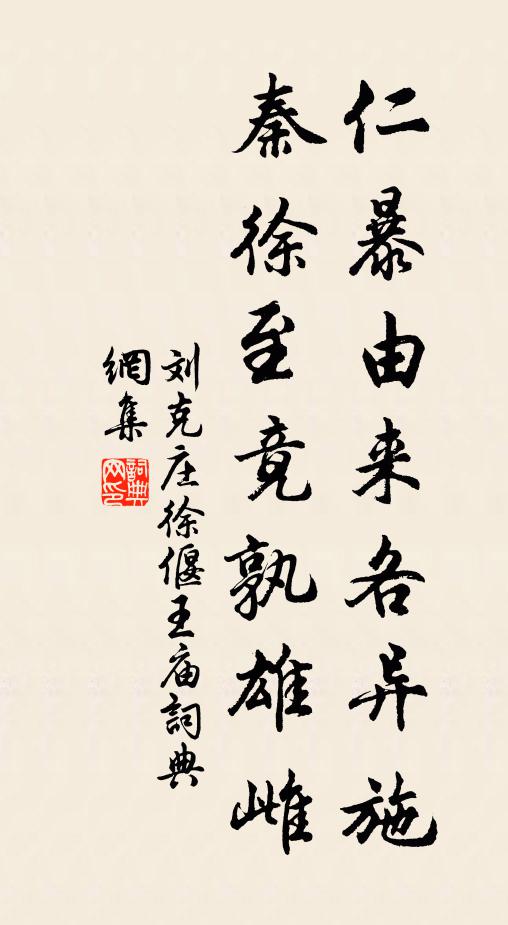 仁暴由来各异施
秦徐至竟孰雄雌
刘克庄徐偃王庙詞典
網集
詞典网印